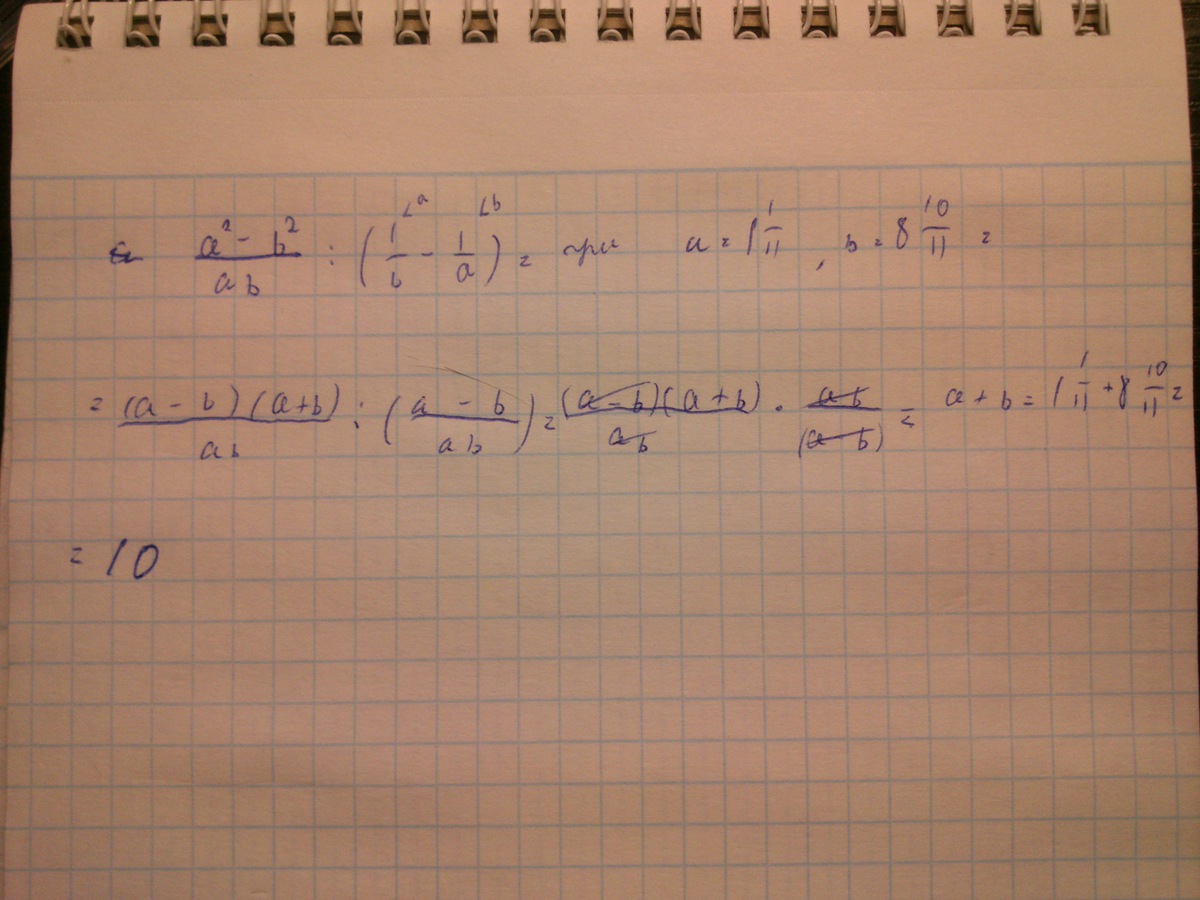 (a² - b²)/(ab) : (1/b - 1/a) = при a = 1 1/11, b = 8 10/11 =
= ((a - b)(a + b))/(ab) : ((a - b)/(ab)) = ((a - b)(a + b))/(ab) · (ab)/((a - b)) = a + b = 1 1/11 + 8 10/11 =
= 10